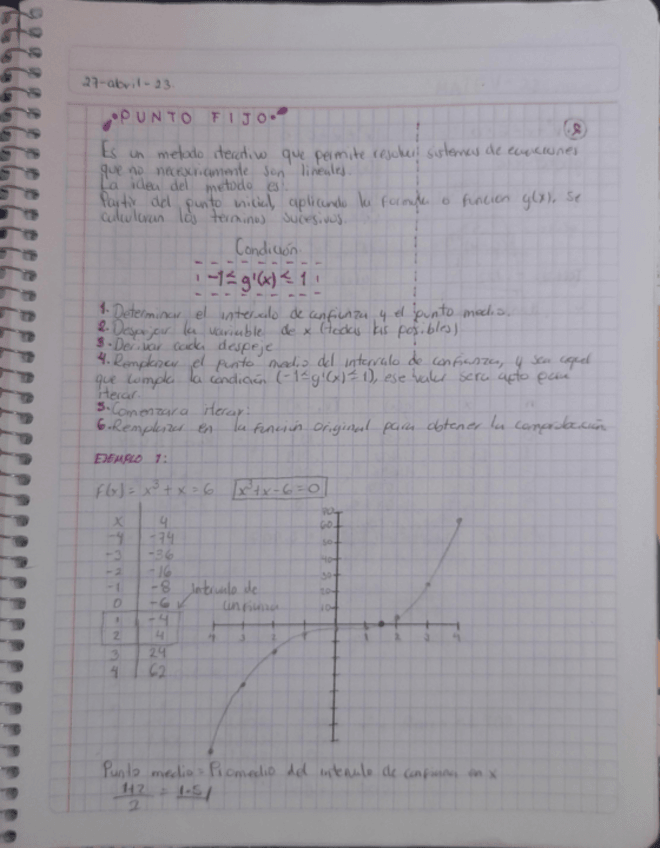 27-abril-23.
PUNTO FIJO
2
Es un metodo iterativo que permite resolver sistemas de ecuaciones
que no necesariamente son lineales.
La idea del metodo es:
Partir del punto inicial, aplicando la formula o funcion g(x), se
calcularan los terminos sucesivos.
Condición
-1≤g'(x)≤1
1. Determinar el intervalo de confianza y el punto medio.
2. Despejar la variable de x (todas las posibles)
3. Derivar cada despeje
4. Remplazar el punto medio del intervalo de confianza, y sea aquel
que cumpla la condición (-1≤g'(x)≤1), ese valor sera apto para
iterar.
5. Comenzar a iterar.
6. Remplazar en la función original para obtener la comprobación
EJEMPLO 1:
f(x) = x³ + x = 6 x³+x-6=0
x y
-4 -74
-3 -36
-2 -16
-1 -8 Intervalo de
0 -6 confianza
1 -4
2 4
3 24
4 62
60
50
40
30
20
10
1 2 3 4
Punto medio = Promedio del intervalo de confianza en x
1+2/2 = 1.5